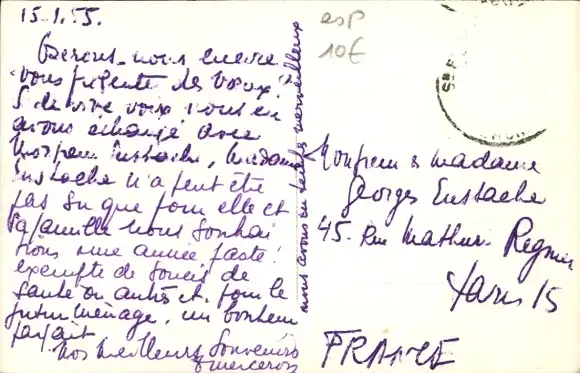 15.1.55.
Oserons-nous encore
vous présenter des vœux?
Si de vive voix nous en
avons échangé avec
Monsieur Eustache, Madame
Eustache n'a peut être
pas su que pour elle et
sa famille nous souhai
tons une année faste!
exempte de soucis de
santé ou autres et, pour le
futur ménage, un bonheur
parfait
Nos meilleurs souvenirs
& mercerons
nous avons eu merveilleux
esp
10€
Monsieur & Madame
Georges Eustache
45. Rue Mathurin Regnier
Paris 15
FRANCE